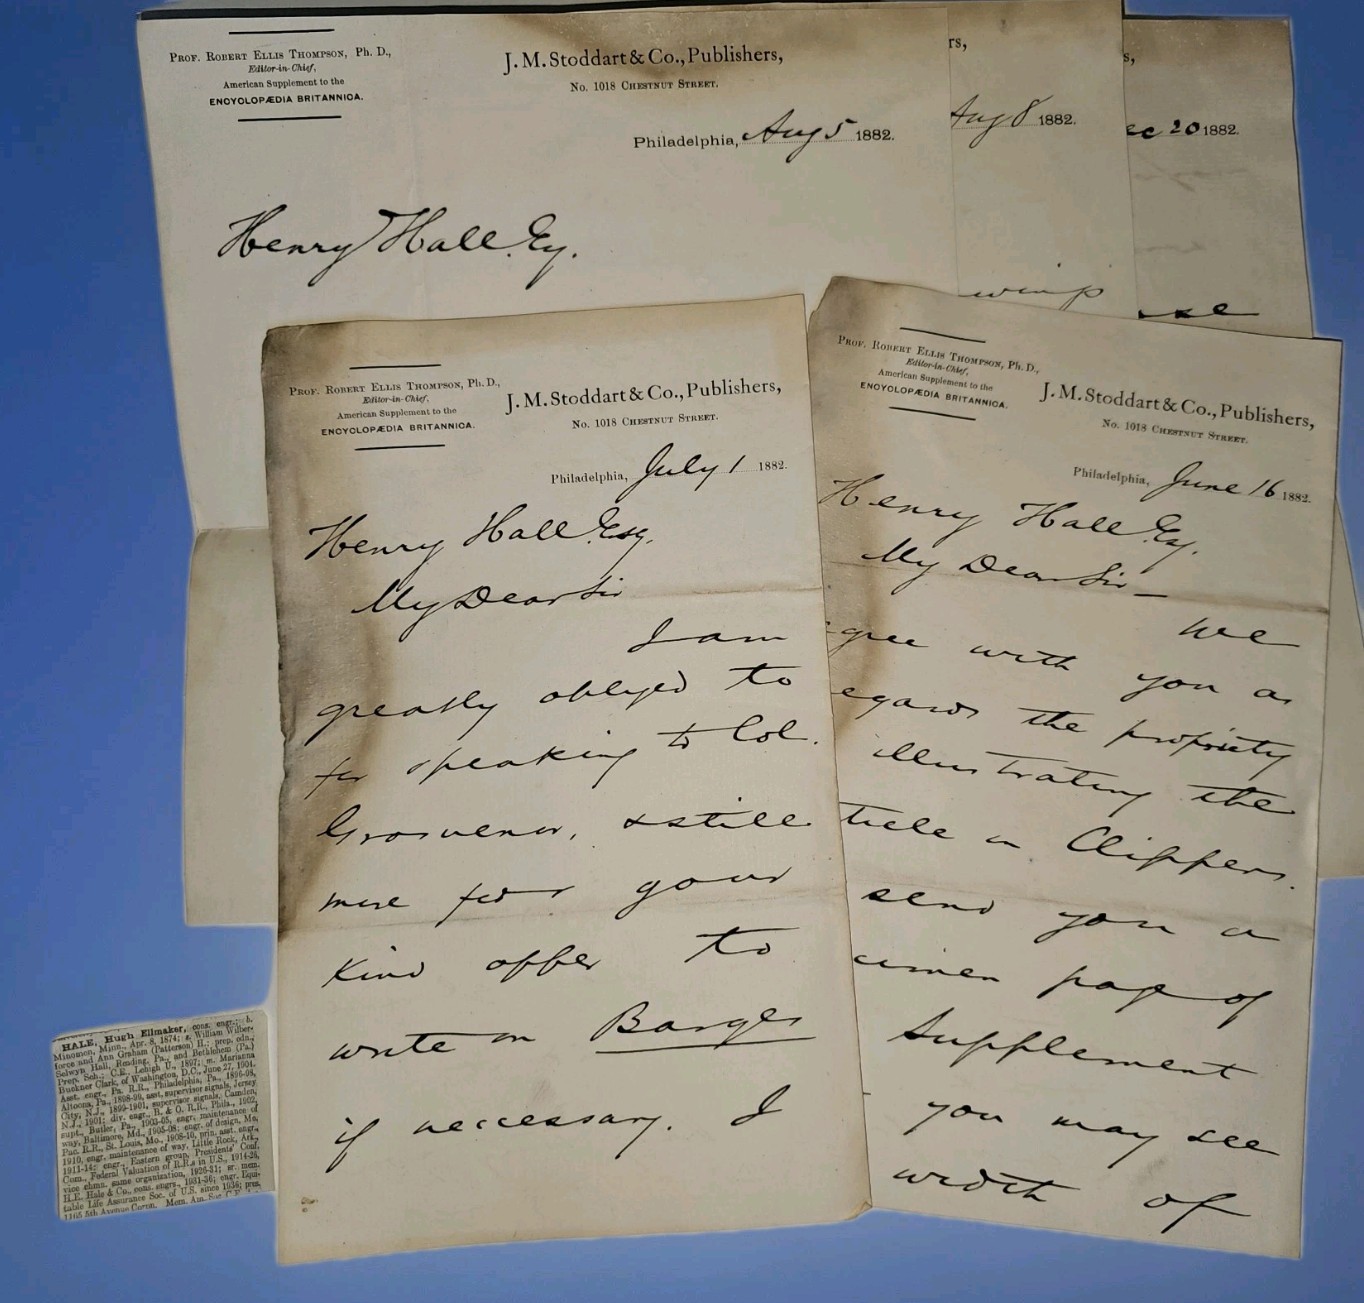 PROF. ROBERT ELLIS THOMPSON, Ph. D.,
Editor-in-Chief,
American Supplement to the
ENCYCLOPÆDIA BRITANNICA.
J. M. Stoddart & Co., Publishers,
No. 1018 CHESTNUT STREET.
Philadelphia, Aug 5 1882.
Henry Hall Esq.
rs,
Aug 8 1882.
s,
ec 20 1882.
PROF. ROBERT ELLIS THOMPSON, Ph. D.,
Editor-in-Chief,
American Supplement to the
ENCYCLOPÆDIA BRITANNICA.
J. M. Stoddart & Co., Publishers,
No. 1018 CHESTNUT STREET.
Philadelphia, July 1 1882.
Henry Hall Esq.
My Dear Sir
I am
greatly obliged to
for speaking to Col.
Grosvenor, & still
more for your
kind offer to
write on Barges
if necessary. I
PROF. ROBERT ELLIS THOMPSON, Ph. D.,
Editor-in-Chief,
American Supplement to the
ENCYCLOPÆDIA BRITANNICA.
J. M. Stoddart & Co., Publishers,
No. 1018 CHESTNUT STREET.
Philadelphia, June 16 1882.
Henry Hall Esq.
My Dear Sir—
We
gree with you as
egards the propriety
illustrating the
ticle on Clippers.
send you a
cimen page of
Supplement
you may see
width of
HALE, Hugh Ellmaker, cons. engr.; b.
Minomen, Minn., Apr. 8, 1874; s. William Wilber-
force and Ann Graham (Patterson) H.; prep. edn.,
Selwyn Hall, Reading, Pa., and Bethlehem (Pa.)
Prep. Sch.; C.E., Lehigh U., 1897; m. Marianna
Buckner Clark, of Washington, D.C., June 27, 1904.
Asst. engr., Pa. R.R., Philadelphia, Pa., 1896-98,
Altoona, Pa., 1898-99, asst. supervisor signals, Jersey
City, N.J., 1899-1901, supervisor signals, Camden,
N.J., 1901; div. engr., B. & O. R.R., Phila., 1902,
supt., Butler, Pa., 1903-05, engr. maintenance of
way, Baltimore, Md., 1905-08; engr. of design, Mo.
Pac. R.R., St. Louis, Mo., 1908-10, prin. asst. engr.,
1910, engr. maintenance of way, Little Rock, Ark.,
1911-14; engr., Eastern group, Presidents' Conf.
Com., Federal Valuation of R.R.s in U.S., 1914-26,
vice chmn. same organization, 1926-31; sr. mem.
H.E. Hale & Co., cons. engrs., 1931-36; engr. Equi-
table Life Assurance Soc. of U.S. since 1936; pres.
1165 5th Avenue Corpn. Mem. Am. Soc. C.E.